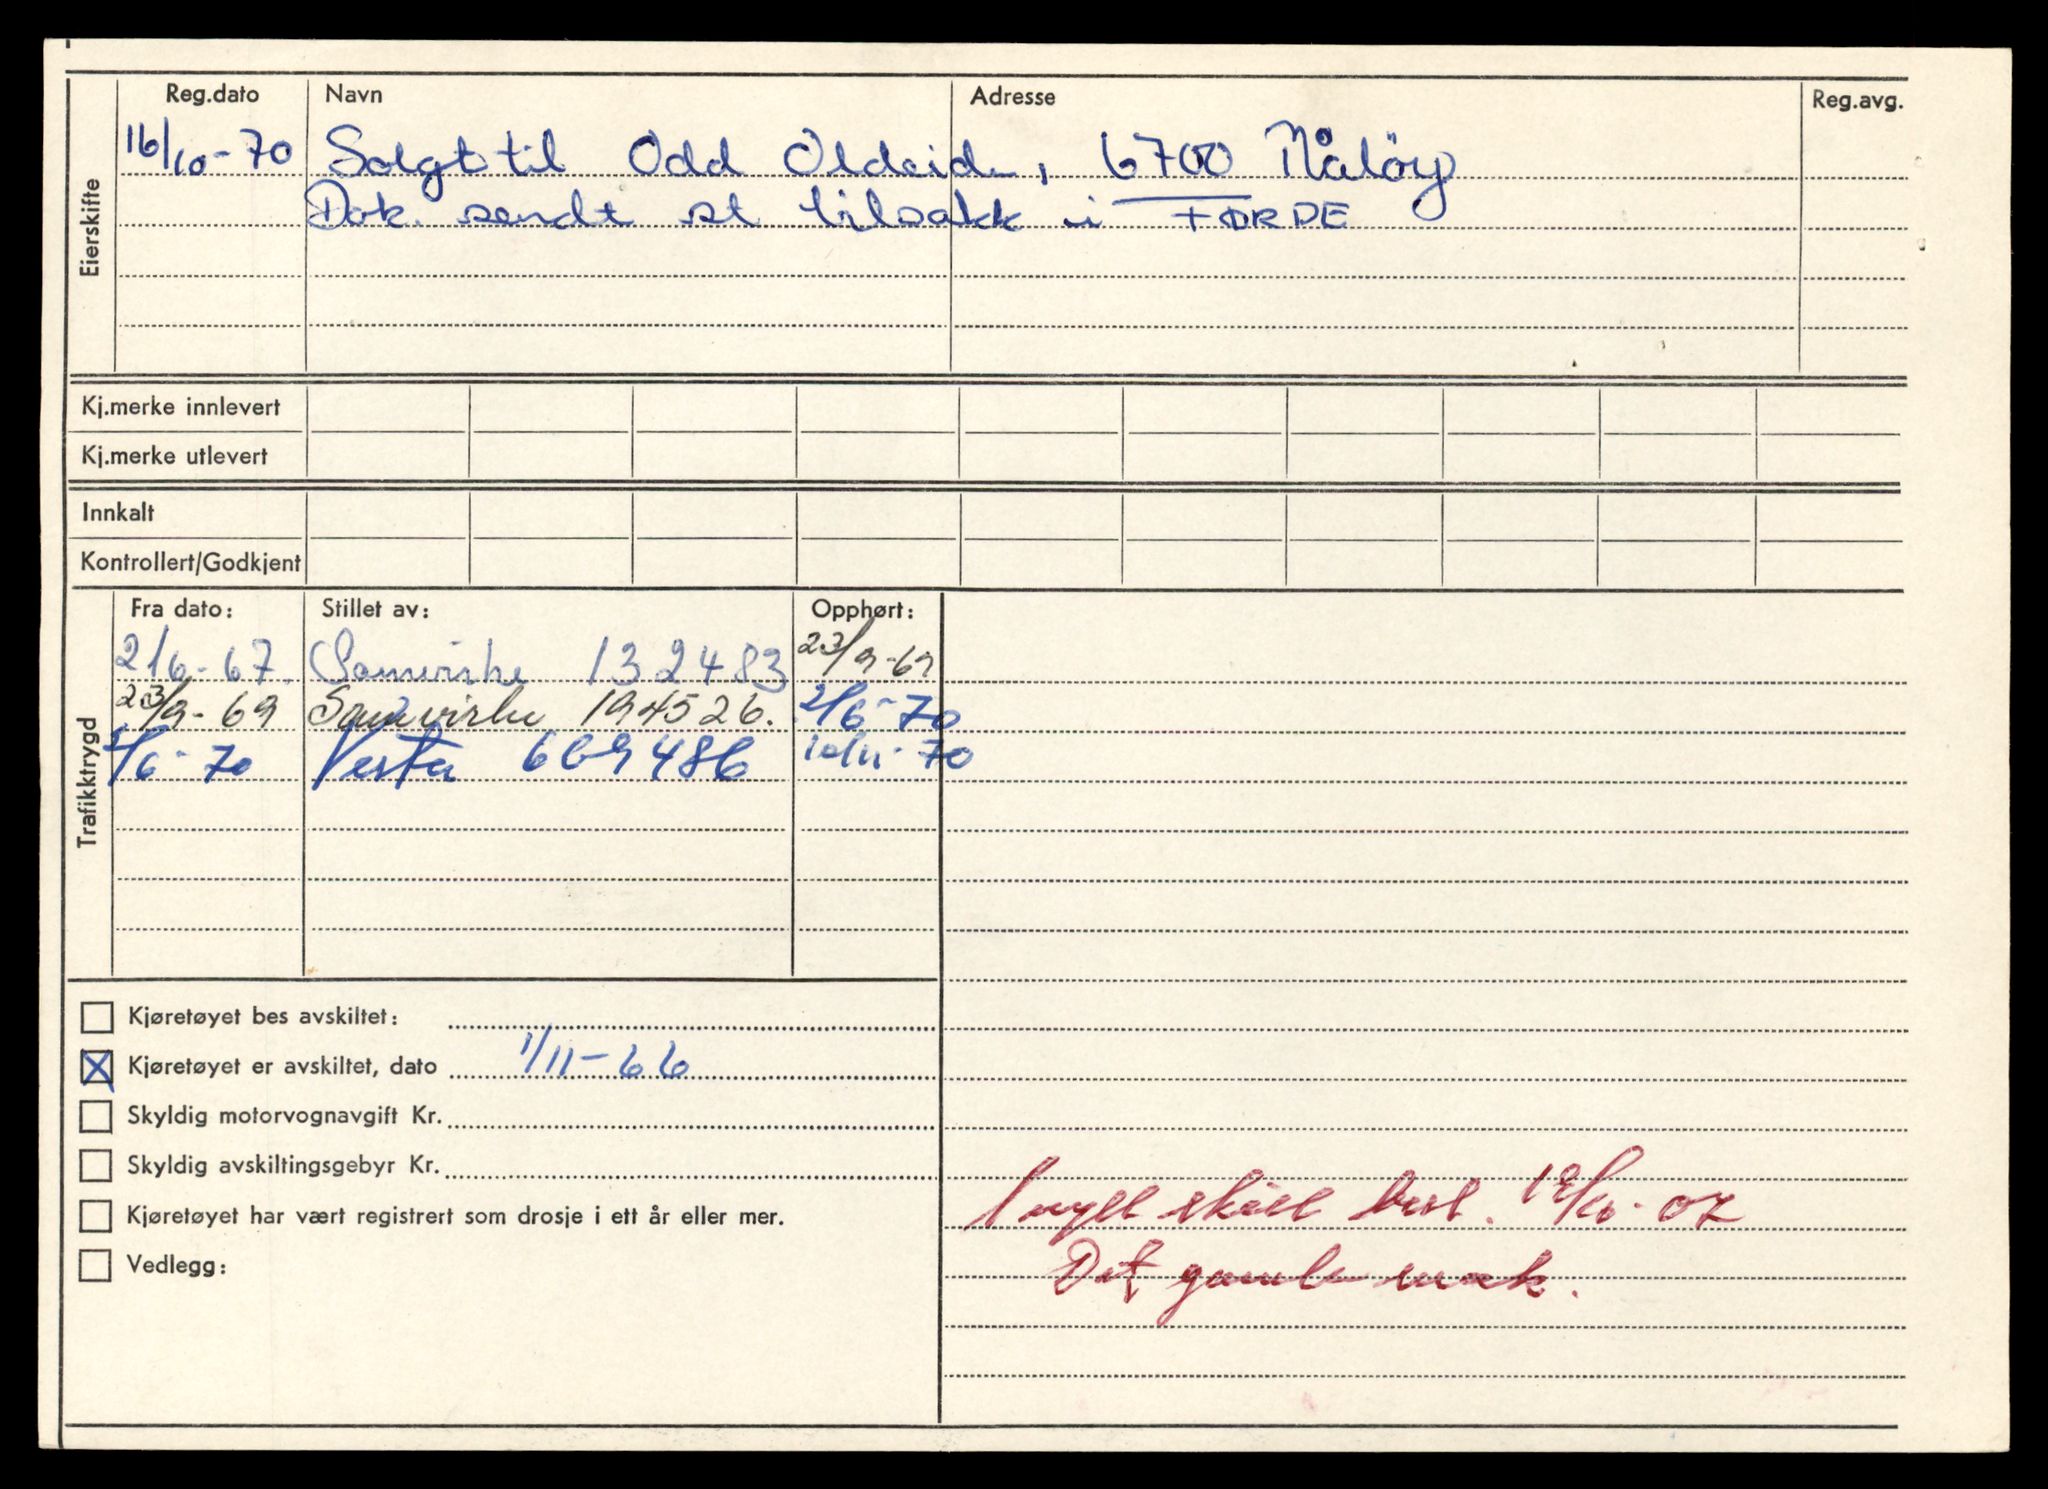 Eierskifte
Reg.dato Navn Adresse Reg.avg.
16/10-70 Solgt til Odd Oldeide, 6700 Måløy
Dok. sendt st tilsakk i FØRDE
Kj.merke innlevert
Kj.merke utlevert
Innkalt
Kontrollert/Godkjent
Trafikktrygd
Fra dato: Stillet av: Opphørt:
2/6-67. Samvirke 132483 23/9-69
23/9-69 Samvirke 194526. 2/6-70
2/6-70 Vesta 669486 10/11-70
Kjøretøyet bes avskiltet:
Kjøretøyet er avskiltet, dato 1/11-66
Skyldig motorvognavgift Kr.
Skyldig avskiltingsgebyr Kr.
Kjøretøyet har vært registrert som drosje i ett år eller mer.
Vedlegg:
1 nytt skilt best.
Det gamle